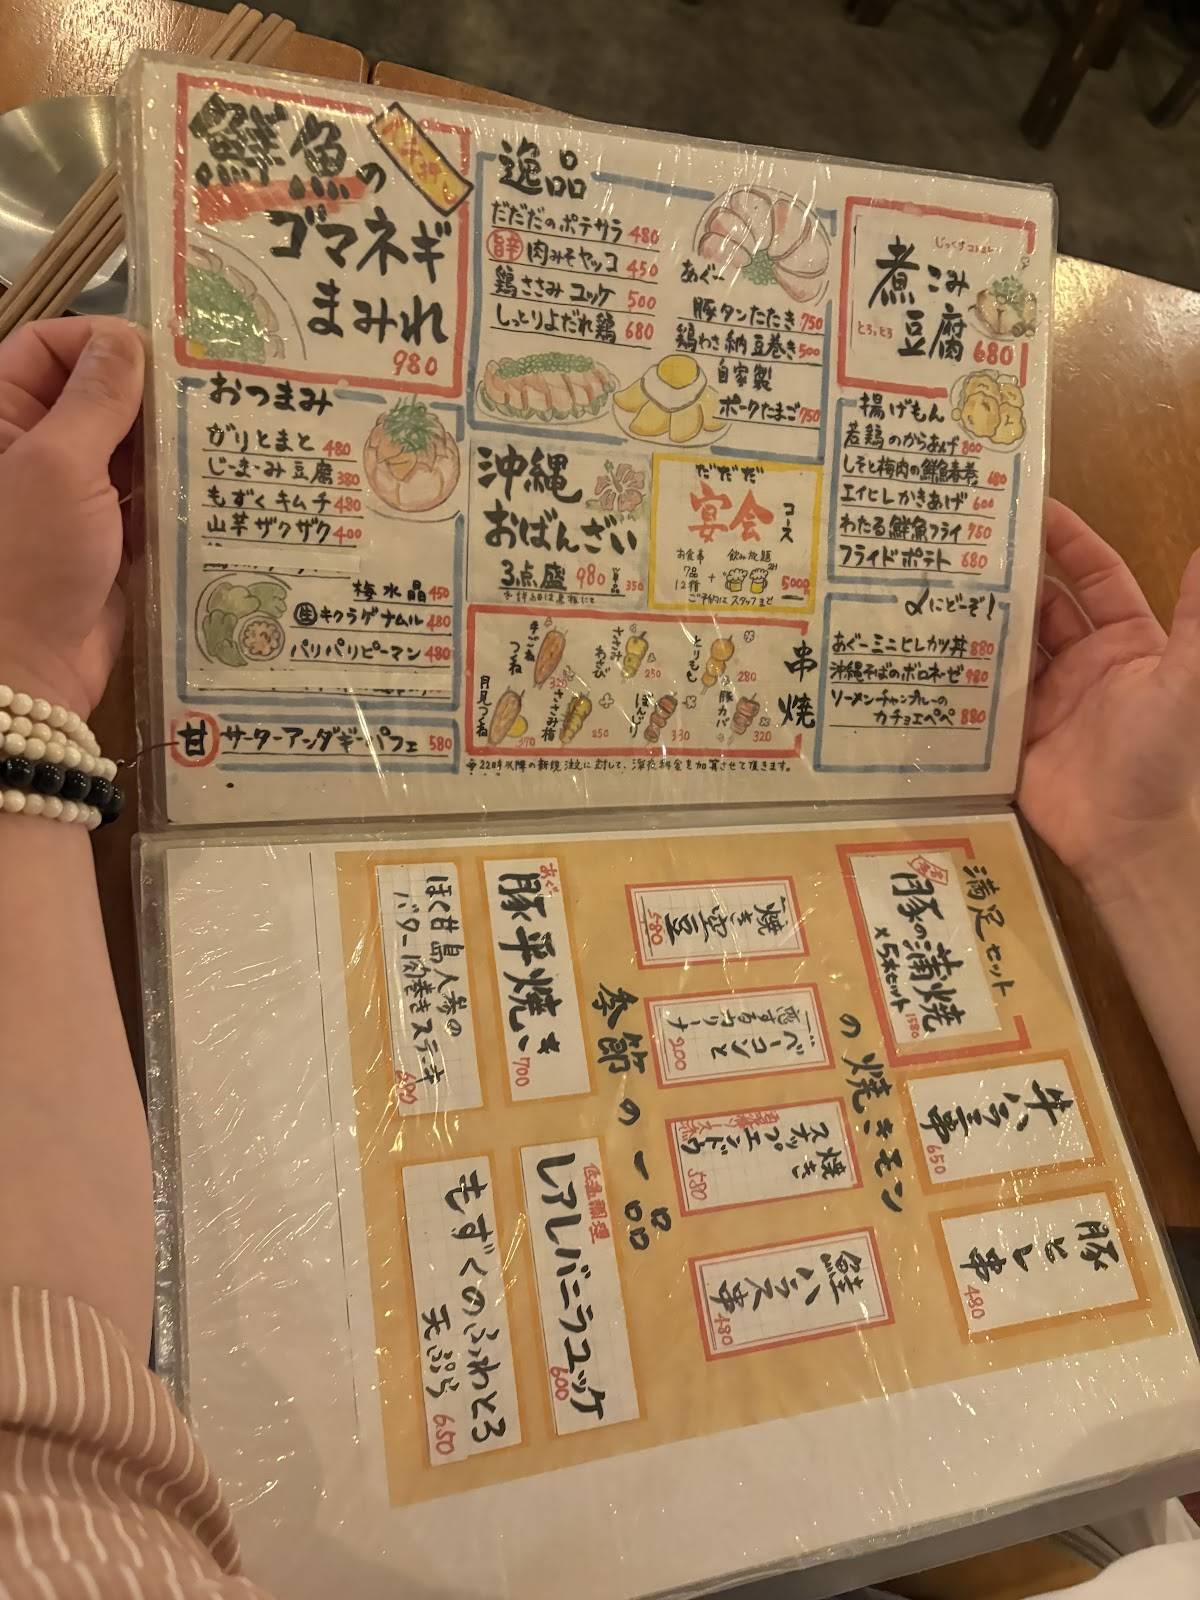 鮮魚の
ゴマネギ
まみれ
980
おつまみ
ガリとまと 480
じーまーみ豆腐 380
もずくキムチ 480
山芋ザクザク 400
梅水晶 450
生キクラゲナムル 480
パリパリピーマン 480
甘 サーターアンダギーパフェ 580
逸品
だだだのポテサラ 480
旨辛 肉みそヤッコ 450
鶏ささみユッケ 500
しっとりよだれ鶏 680
あぐー
豚タンたたき 750
鶏わさ納豆巻き 500
自家製
ポークたまご 750
沖縄
おばんざい
3点盛 980 単品 350
だだだ
宴会
コース
お食事 飲み放題
7品
12種 + 2H
5000
ご予約はスタッフまで
串焼
とりもも 280
ささみわさび 250
手ごねつくね 320
豚カバ 320
ぼんじり 330
ささみ梅 250
月見つくね 370
※22時以降の新規注文に対して、深夜料金を加算させて頂きます。
煮こみ
豆腐
とろっとろ
680
揚げもん
若鶏のからあげ 800
しそと梅肉の鮮魚春巻 680
エイヒレかきあげ 600
わたる鮮魚フライ 780
フライドポテト 680
〆にどーぞ!
あぐーミニヒレカツ丼 880
沖縄そばのボロネーゼ 980
ソーメンチャンプルーの
カチョエペペ 880
満足セット
豚の蒲焼
×5本セット 1580
牛ハラミ串
650
豚ヒレ串
480
季節の一品
の焼きモン
焼き空豆
580
ベーコンと
恋するカリーナ
900
焼き
スナップエンドウ
580
鮭ハラス串
480
あぐー
豚平焼き
700
低温調理
レアレバニラユッケ
600
ぼく甘島人参の
バター肉巻きステーキ
もずくのふわとろ
天ぷら 650